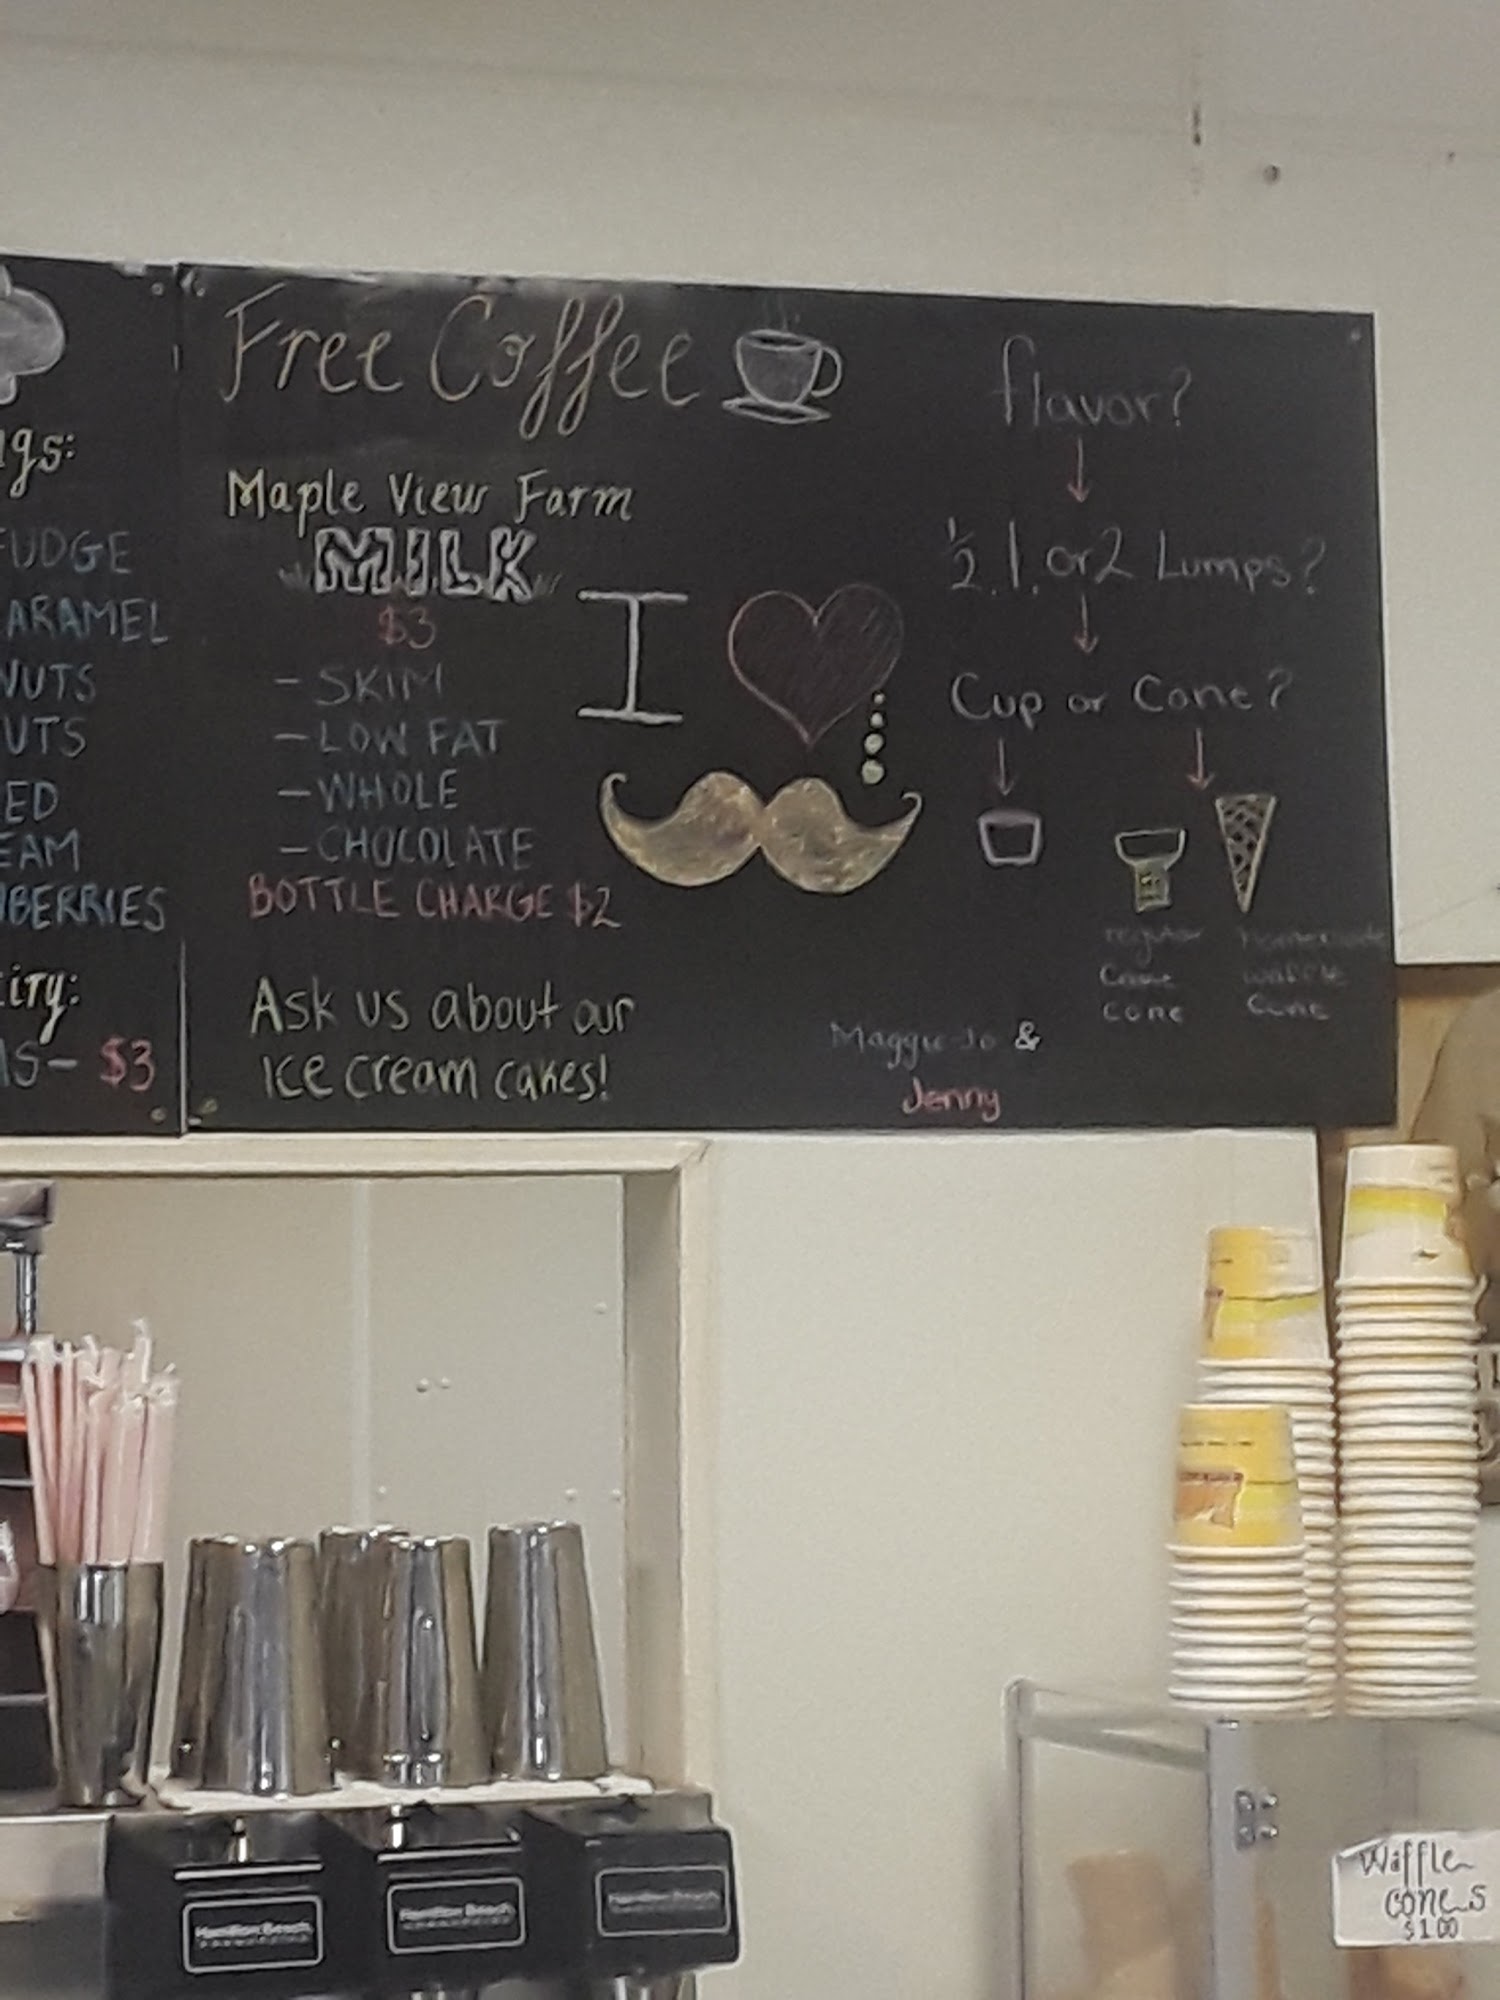 Free Coffee
Maple View Farm
MILK
$3
- SKIM
- LOW FAT
- WHOLE
- CHOCOLATE
BOTTLE CHARGE $2
Ask us about our
Ice cream cakes!
I
flavor?
1/2, 1, or 2 Lumps?
Cup or Cone?
regular
cone
homemade
waffle
cone
Maggie Jo &
Jenny
FUDGE
ARAMEL
NUTS
UTS
ED
EAM
BERRIES
- $3
Hamilton Beach
Hamilton Beach
Hamilton Beach
Waffle
cones
$1.00